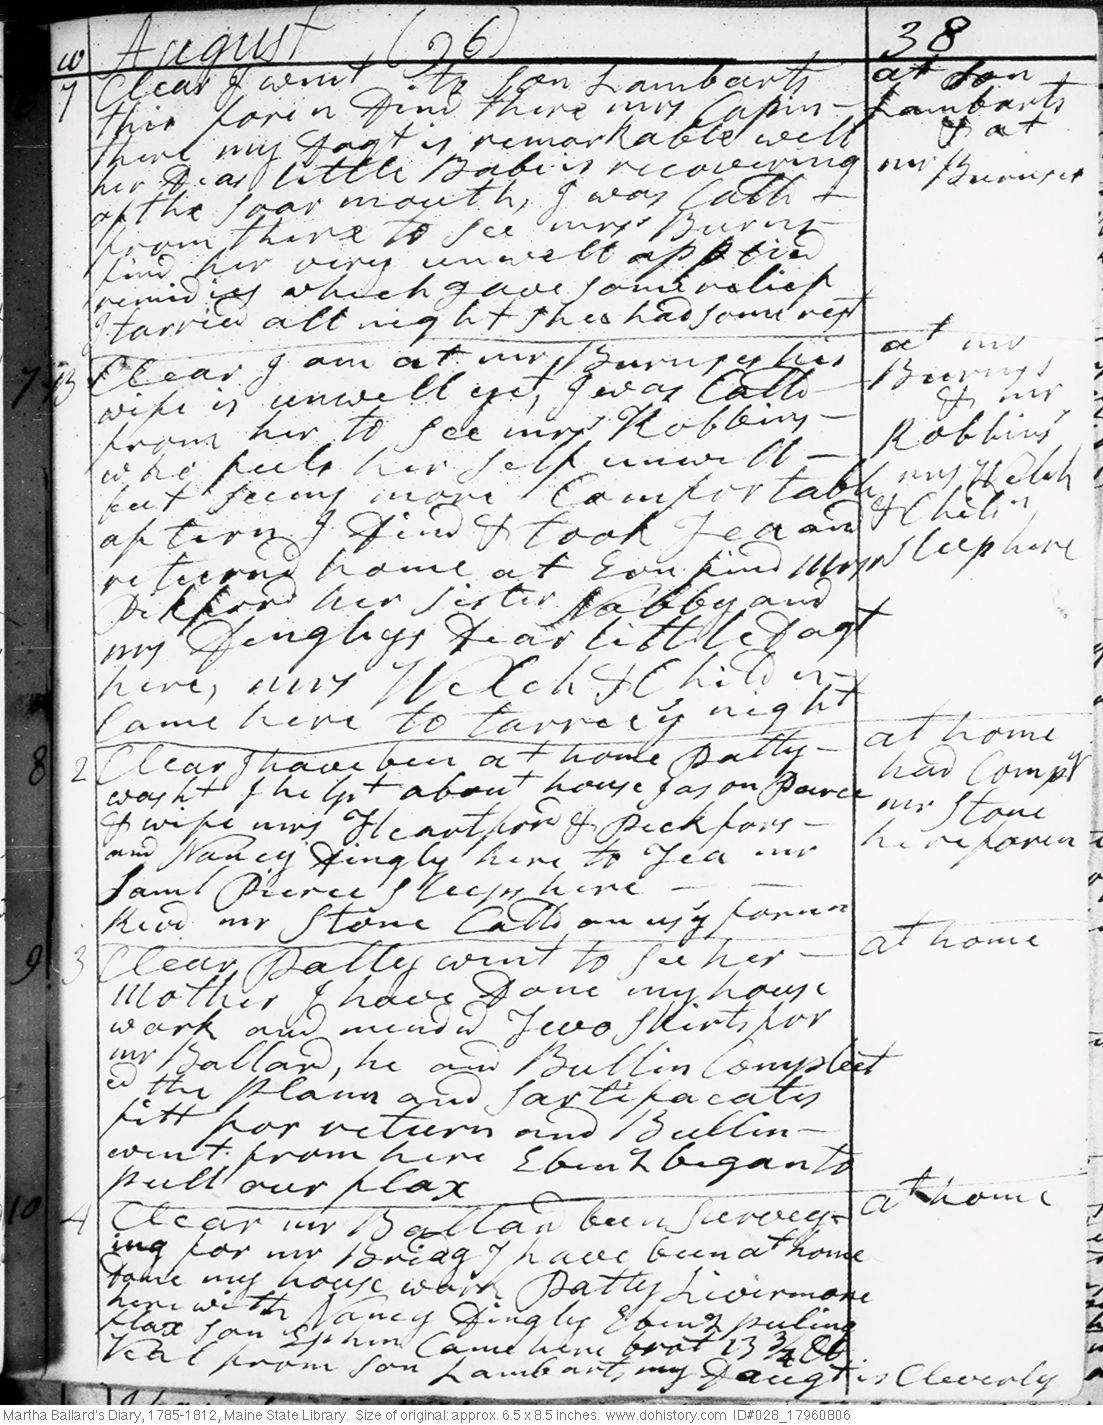 w August (96) 38
7 Clear I went to Son Lambarts
this foren Dind there mrs Capin
there my Dagt is remarkable well
her Dear little Babe is recovering
of the soar mouth, I was Calld
from there to see mrs Burns
find her very unwell applied
remidies which gave some relief
I tarried all night shee had some rest
at Son
Lambarts
& at
mr Burnses
7 B Clear I am at mr Burnses his
wife is unwell yet, I was Calld
from her to see mrs Robbins
who feels her self unwell
but seems more Comfortable
aftern I Dind & took Tea and
returnd home at Evn find Mrss
Pickford her sister Nabby and
mrs Dinglys Dear little Dagt
here, mrs Welch & Children
Came here to tarre ye night
at mr
Burnss
& mr
Robbins
mrs Welch
& Childn
sleep here
8 2 Clear I have been at home Patty
washt I helpt about house Jason Pierce
& wife mrs Heartford & Pickfors
and Nancy Dingly here to Tea mr
Saml Pierce sleeps here
Revd mr Stone Calld on us ye foren
at home
had Compy
mr Stone
here foren
9 3 Clear Patty went to see her
Mother I have Done my house
work and mendid Two Shirts for
mr Ballard, he and Bullin Compleet
ed the Plann and Sartifacates
fitt for return and Bullin
went from here Ebenz began to
pull our flax
at home
10 4 Clear mr Ballard been survey
ing for mr Bridg I have been at home
Done my house work Patty Livermore
here with Nancy Dingly Ebenz puling
flax son Ephm Came here brot 13 3/4 lb
Veal from son Lambarts my Daugt is Cleverly
at home
Martha Ballard's Diary, 1785-1812, Maine State Library. Size of original: approx. 6.5 x 8.5 inches. www.dohistory.com ID#028_17960806